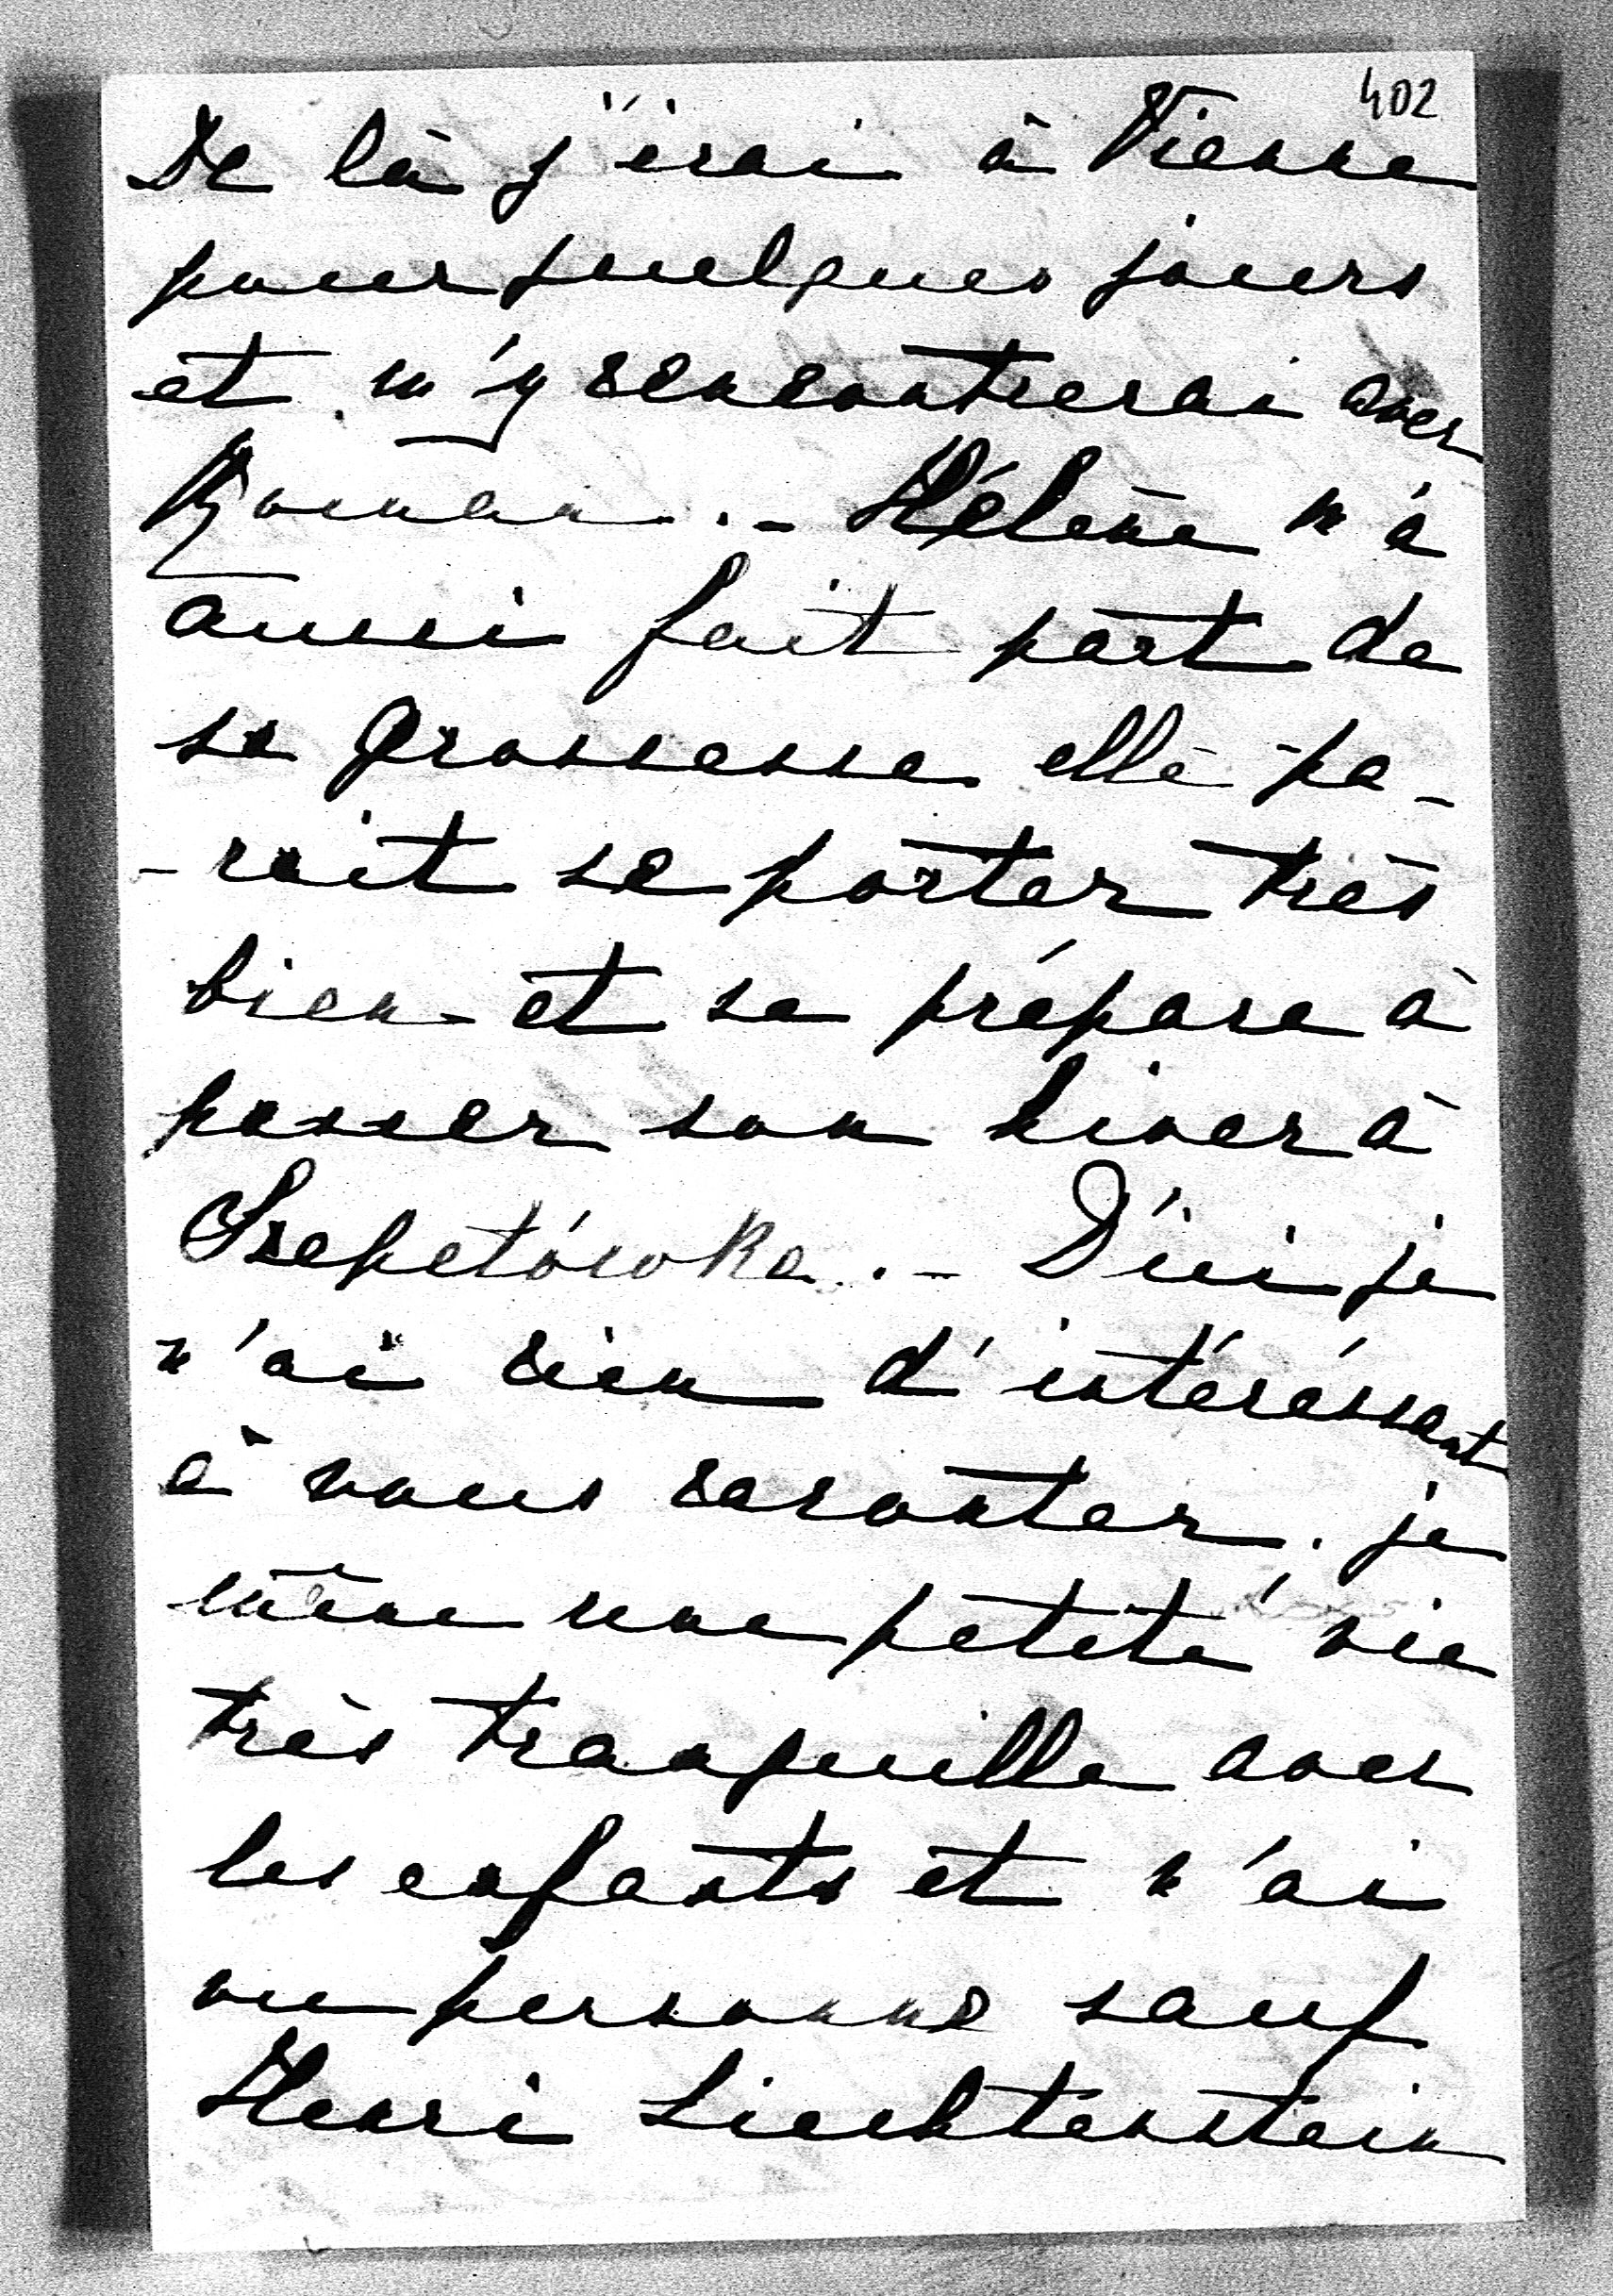 402
De là j'irai à Vienne
pour quelques jours
et m'y rencontrerai avec
Roman. - Hélène m'a
aussi fait part de
sa grossesse elle pa-
-rait se porter très
bien et se prépare à
passer son hiver à
Szepetówka. - D'ici je
n'ai rien d'intéréssant
à vous raconter, je
mène une petite vie
très tranquille avec
les enfants et n'ai
vu personne sauf
Henri Liechtenstein